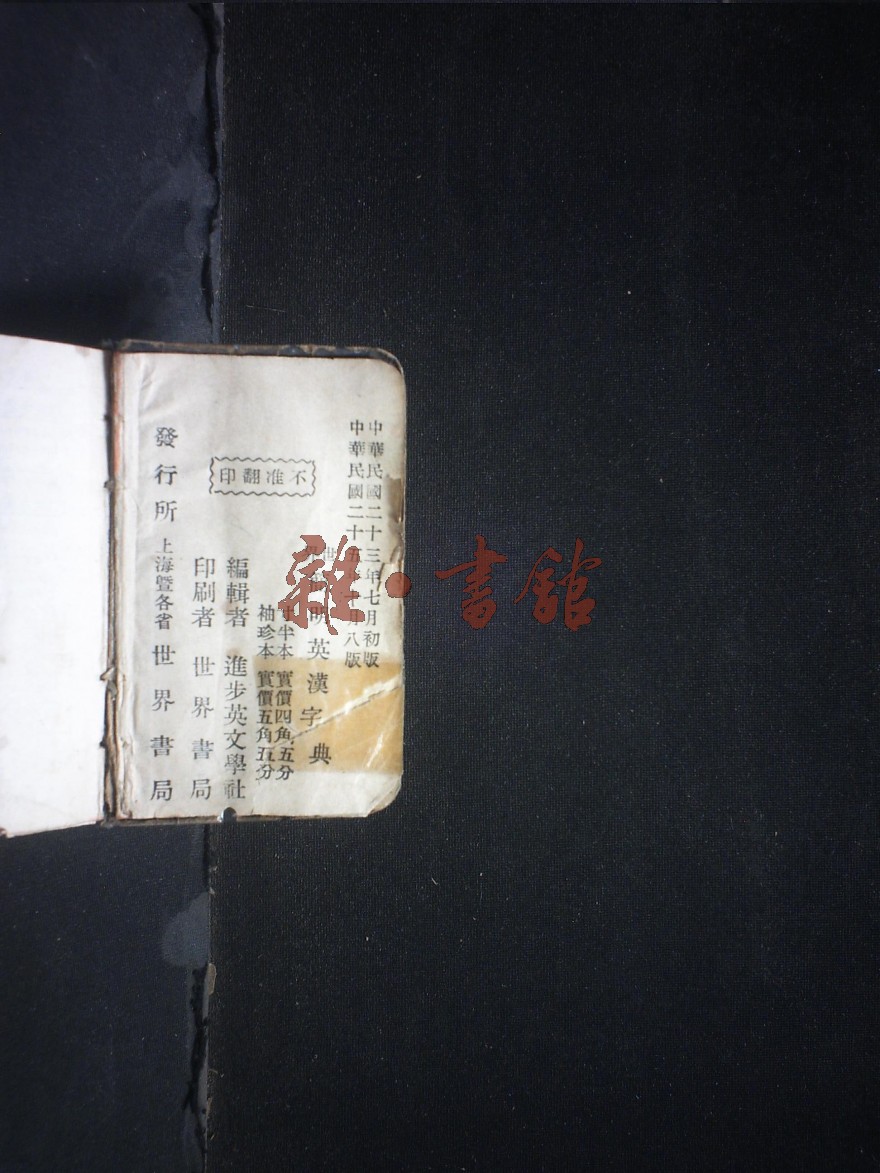 中華民國二十三年七月初版
中華民國二十五年 月八版
世界 明英漢字典
寸半本 實價四角五分
袖珍本 實價五角五分
不准翻印
編輯者 進步英文學社
印刷者 世界書局
發行所 上海暨各省 世界書局
雜·書館